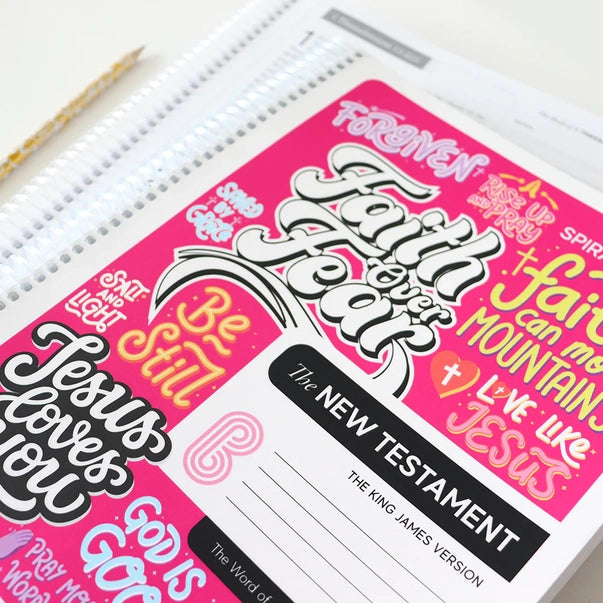 1
FORGIVEN
Faith
Over
Fear
RISE UP
AND PRAY
SAVED
BY
GRACE
SPIR
faith
can mo
MOUNTAINS
SALT
AND
LIGHT
Be
Still
LOVE LIKE
JESUS
Jesus
loves
you
The NEW TESTAMENT
THE KING JAMES VERSION
B
GOD IS
GOO
PRAY
WORR
The Word of